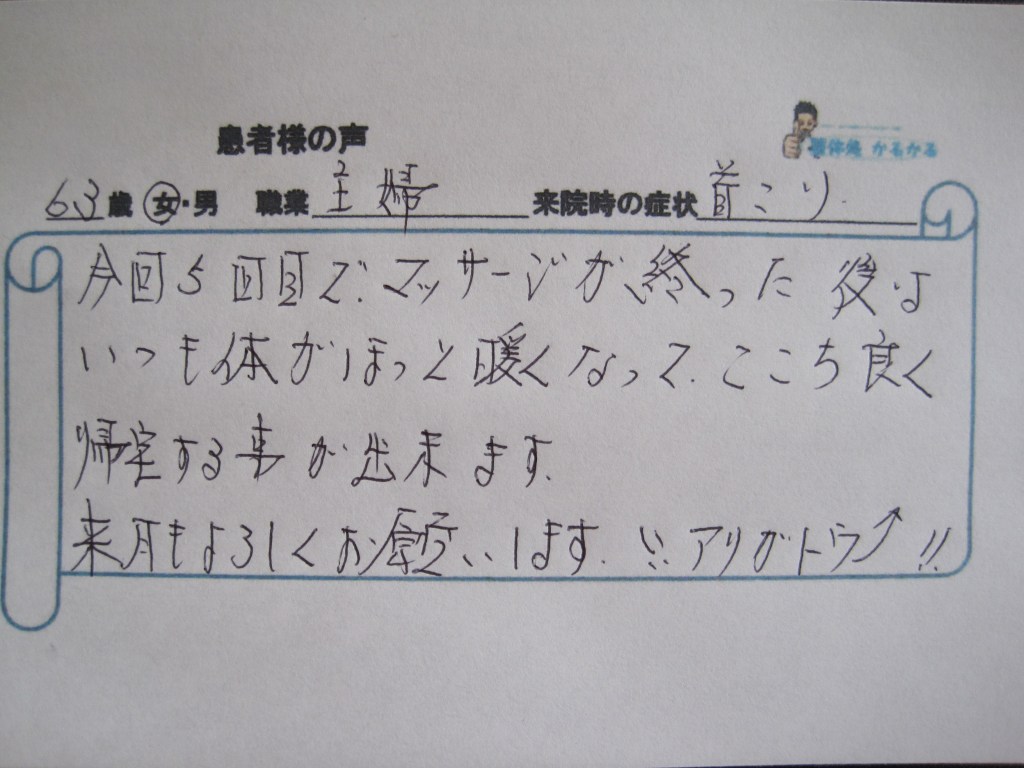 患者様の声
整体処 かるかる
63歳 女・男 職業 主婦 来院時の症状 首こり.
今回5回目で、マッサージが、終った後は
いつも体がほっと暖くなって、ここち良く
帰宅する事が出来ます.
来月もよろしくお願いします.!!アリガトウ↗!!